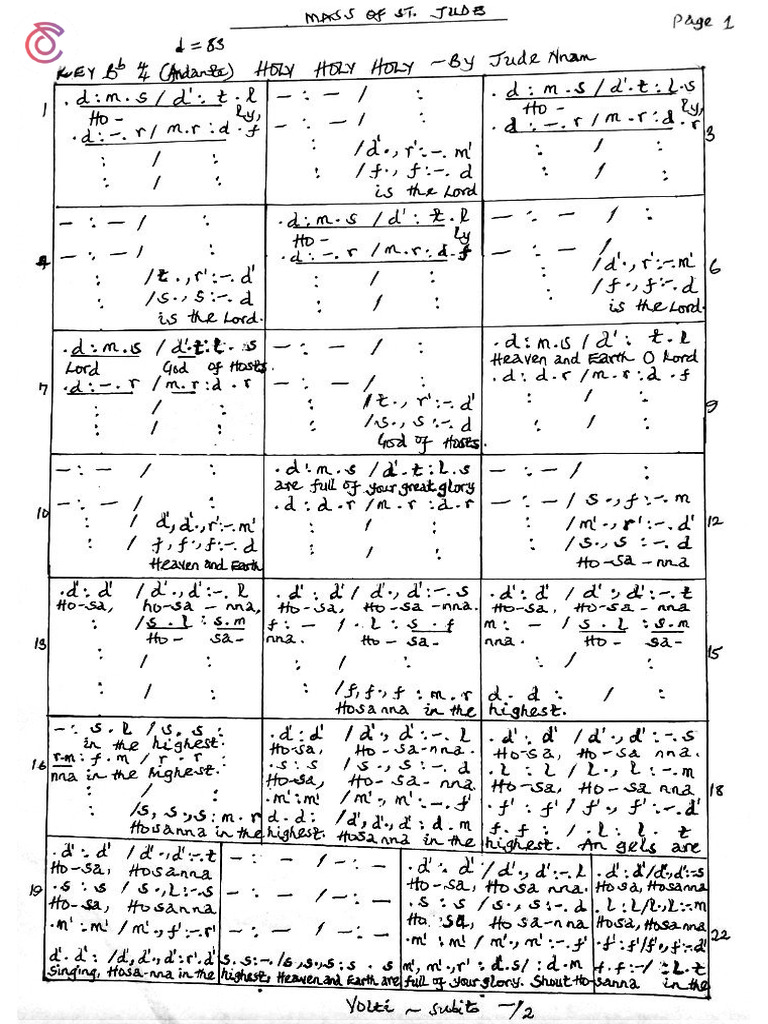 MASS OF ST. JUDE
Page 1
d = 83
KEY Bb 4/4 (Andante) HOLY HOLY HOLY - By Jude Nnam
1
. d : m . s / d' : t . l
Ho - ly,
. d : - . r / m . r : d . f
: / :
: / :
- : - / :
- : - / :
: / d' . , r' : - . m'
: / f . , f : - . d
is the Lord
. d : m . s / d' . t : l . s
Ho - ly,
. d : - . r / m . r : d . r
: / :
: / :
3
4
- : - / :
- : - / :
: / t . , r' : - . d'
: / s . , s : - . d
is the Lord.
. d : m . s / d' : t . l
Ho - ly
. d : - . r / m . r : d . f
: / :
: / :
- : - / :
- : - /
: / d' . , r' : - . m'
: / f . , f : - . d
is the Lord
6
7
. d : m . s / d' . t : l . s
Lord God of Hosts.
. d : - . r / m . r : d . r
: / :
: / :
- : - / :
- : - / :
: / t . , r' : - . d'
: / s . , s : - . d
God of Hosts.
. d : m . s / d' : t . l
Heaven and Earth O Lord
. d : d . r / m . r : d . f
: / :
: / :
9
10
- : - / :
- : - / :
: / d' , d' . , r' : - . m'
: / f , f . , f : - . d
Heaven and Earth
. d : m . s / d' . t : l . s
are full of your great glory
. d : d . r / m . r : d . r
: / :
: / :
- : - / :
- : - / s . , f : - . m
: / m' . , r' : - . d'
: / s . , s : - . d
Ho - sa - nna
12
13
. d' : d' / d' . , d' : - . l
Ho-sa, ho-sa - nna,
: / s . l : s . m
Ho - sa -
: / :
: / :
. d' : d' / d' . , d' : - . s
Ho-sa, Ho-sa-nna.
f : - / . l : s . f
nna. Ho - sa-
: / :
: / f , f . , f : m . r
Hosanna in the
. d' : d' / d' . , d' : - . t
Ho-sa, Ho-sa-nna
m : - / s . l : s . m
nna. Ho - sa-
: / :
d . d : / :
highest.
15
16
- : s . l / s . s :
in the highest.
r . m : f . m / r . r :
nna in the highest.
: / :
: / s , s . , s : m . r
Hosanna in the
. d' : d' / d' . , d' : - . l
Ho-sa, Ho-sa-nna.
. s : s / s . , s : - . d
Ho-sa, Ho-sa-nna.
. m' : m' / m' . , m' : - . f'
d . d : / d' , d' . , d' : d . m
highest. Hosanna in the
. d' : d' / d' . , d' : - . s
Ho-sa, Ho-sa nna.
. l : l / l . , l : - . m
Ho-sa, Ho-sa nna
. f' : f' / f' . , f' : - . d'
f . f : / . l : l . t
highest. An gels are
18
19
. d' : d' / d' . , d' : - . t
Ho-sa, Hosanna
. s : s / s . , l : - . s
Ho-sa, Hosanna
. m' : m' / m' . , f' : - . r'
d' . d' : / d' , d' . , d' : r' . d'
singing, Hosa-nna in the
- : - / - : -
- : - / - : -
- : - / - : -
s . s : - / s . , s . , s : s . s
highest, Heaven and Earth are
. d' : d' / d' . , d' : - . l
Ho-sa, Hosa nna.
. s : s / s . , s : - . d
Ho sa, Ho sa-nna
. m' : m' / m' . , m' : - . f'
m' , m' . , r' : d . s / : d . m
full of your glory. Shout Ho-
. d' : d' / d' . , d' : - s
Hosa, Hosanna
. l : l / l . , l : - . m
Hosa, Hosanna
. f' : f' / f' . , f' : - d'
f . f : - / : l . t
sanna in the
22
Volti - subito -/2